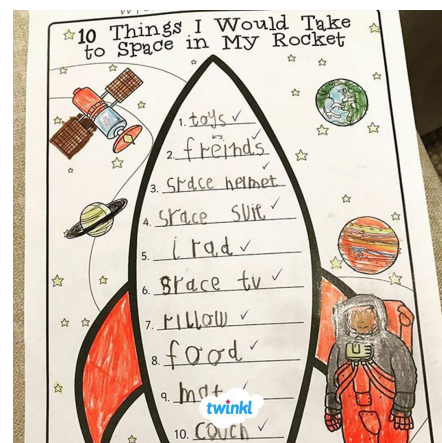 10 Things I Would Take
to Space in My Rocket
1. toys ✓
2. freinds ✓
3. srace helmet ✓
4. srace suit ✓
5. i rad ✓
6. srace tv ✓
7. rillow ✓
8. food ✓
9. mat
twinkl
10. couch ✓